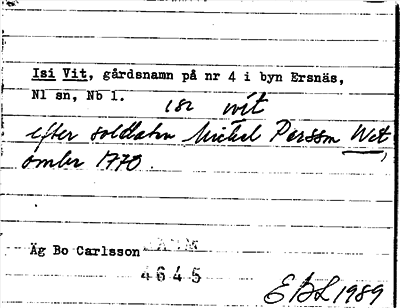 Isi Vit, gårdsnamn på nr 4 i byn Ersnäs,
Nl sn, Nb l.
isi vit
efter soldaten Mickel Persson Wit,
omkr 1770
Äg Bo Carlsson
4645
EBL 1989